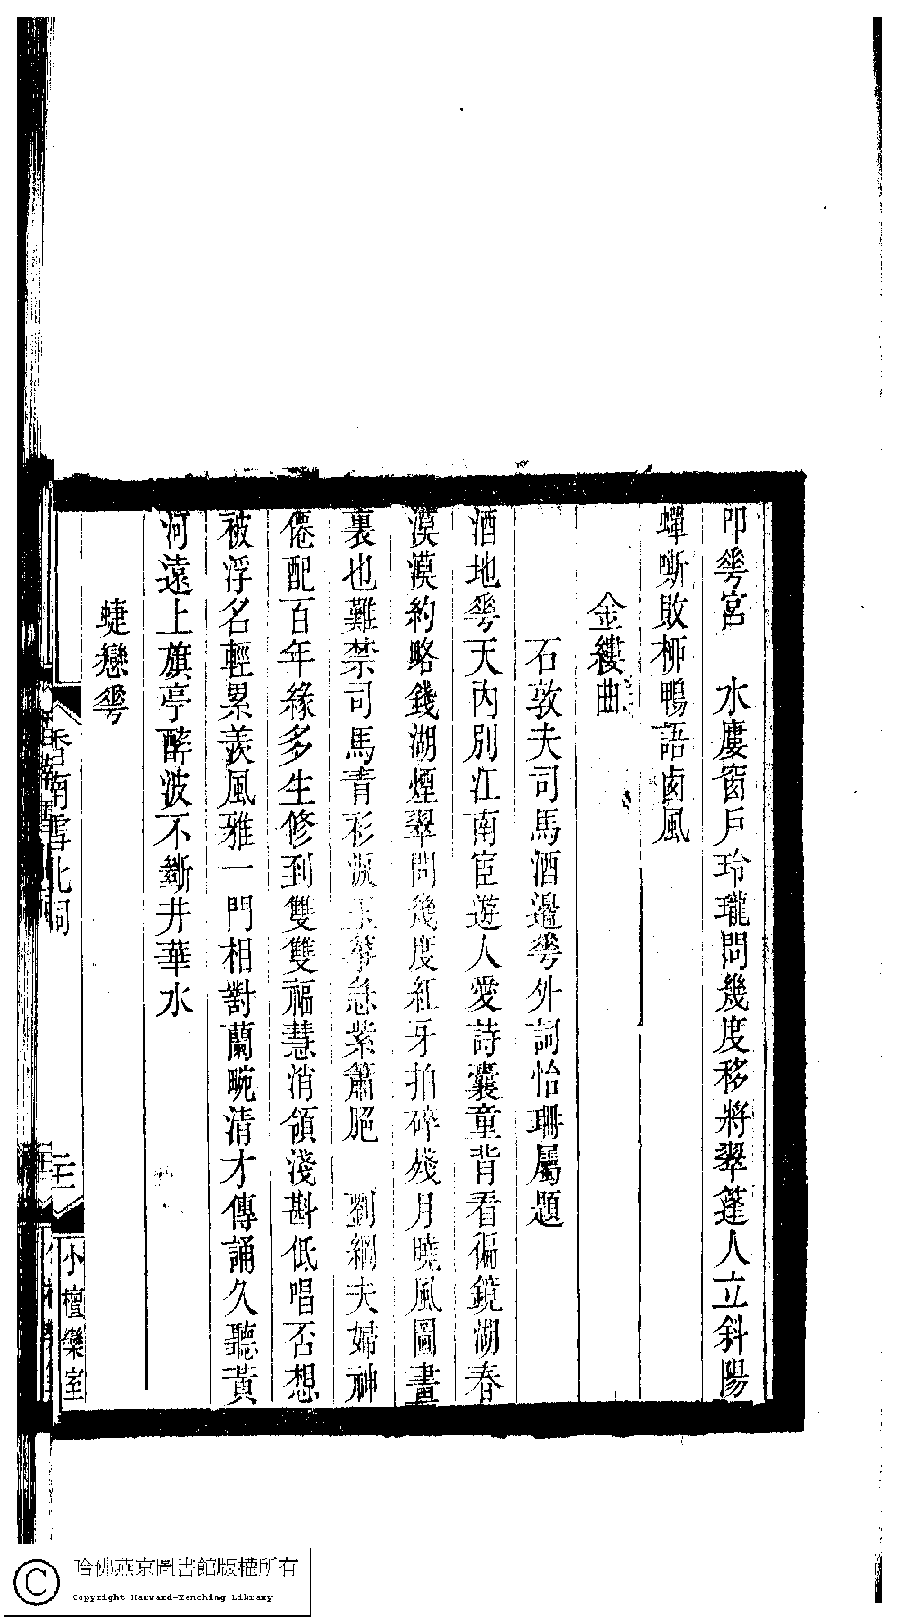 即蕐宮　水廔窗戶玲瓏問幾度移將翠蓬人立斜陽
蟬嘶敗栁鴨語鹵風
金縷曲
石敦夫司馬酒邊蕐外詞怡珊屬題
酒地蕐天內別江南宦遊人愛詩囊童背看徧鏡湖春
漠漠約略錢湖煙翠問幾度紅牙拍碎殘月曉風圖畫
裏也難禁司馬青衫淚玉箏急紫簫脃　劉綱夫婦神
僊配百年緣多生修到雙雙福慧消領淺斟低唱否想
被浮名輕累羨風雅一門相對蘭畹清才傳誦久聽黃
河遠上旗亭醉波不斷井華水
蜨戀蕐
香南雪北詞
小檀欒室
哈佛燕京圖書館版權所有
Copyright Harvard-Yenching Library